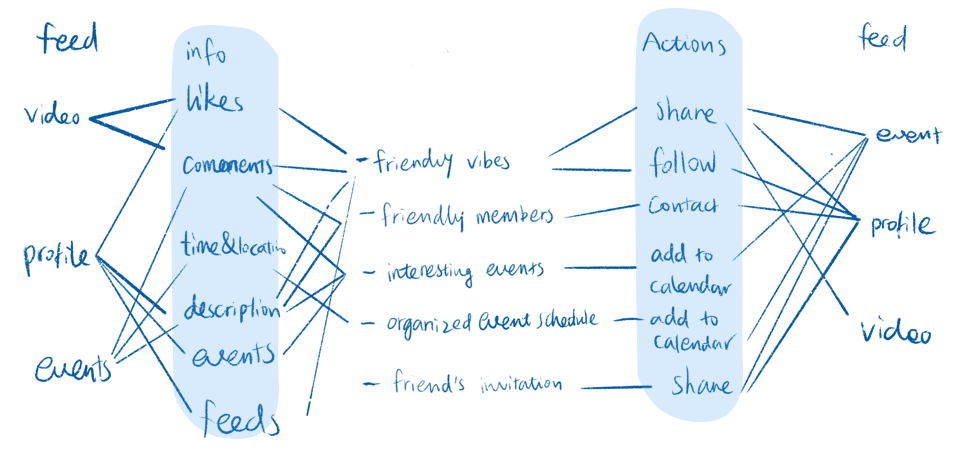 feed
info
likes
video
comments
profile
time&locatio
description
events
events
feeds
- friendly vibes
- friendly members
- interesting events
- organized event schedule
- friend's invitation
Actions
share
follow
contact
add to
calendar
add to
calendar
share
feed
event
profile
video